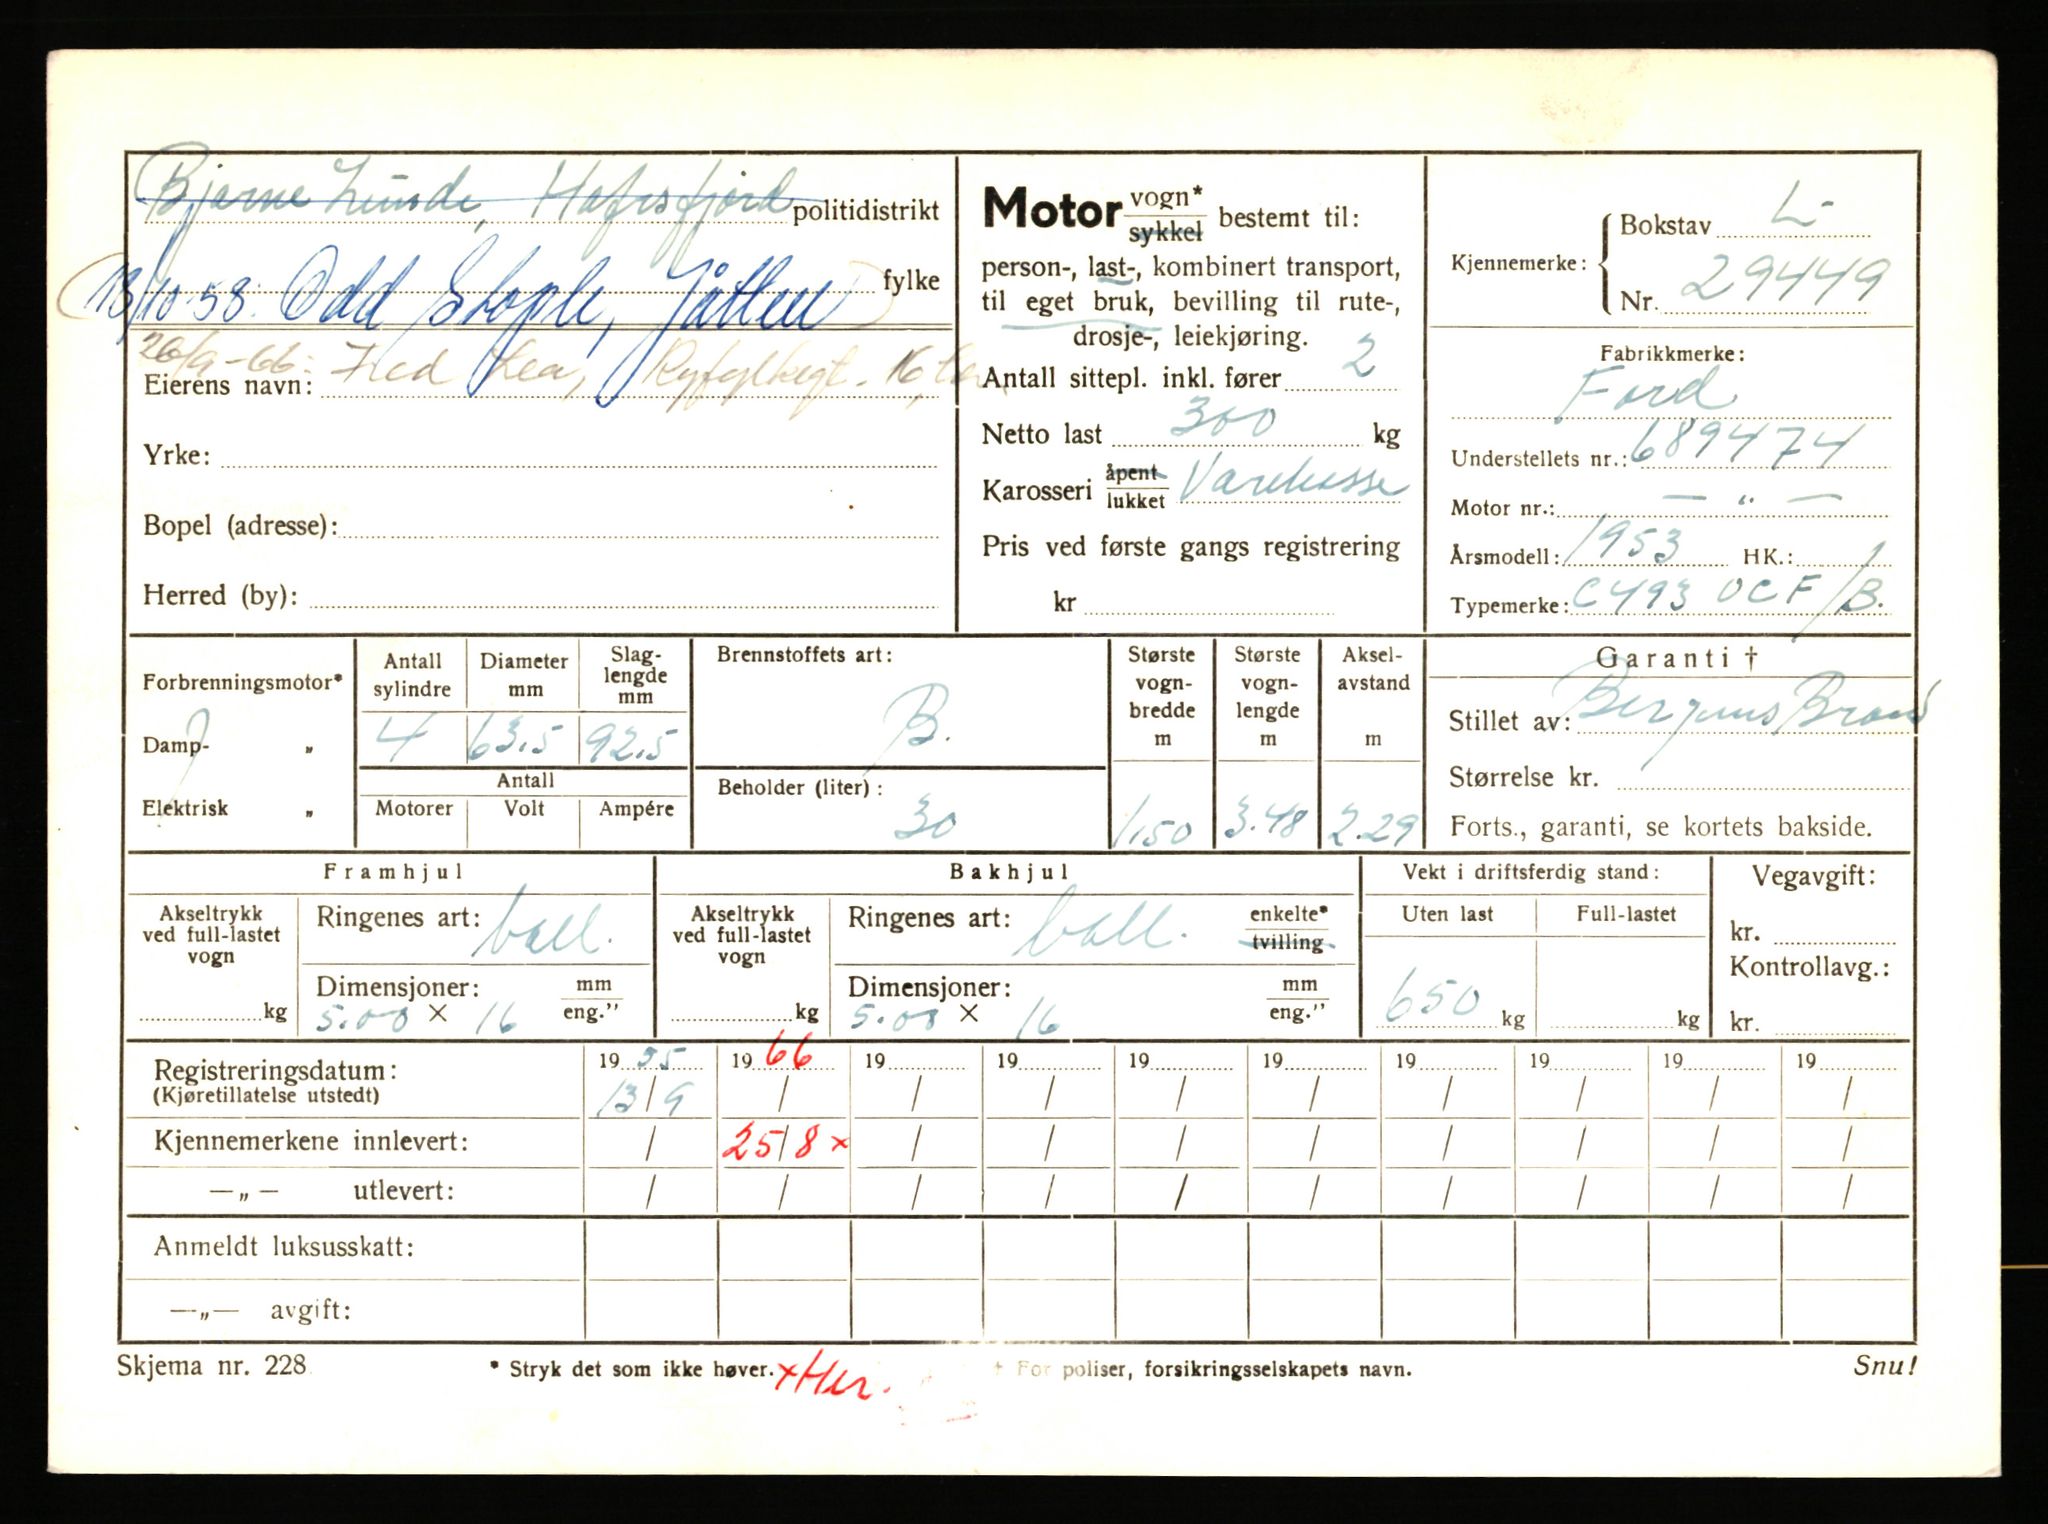 Bjarne Lunde, Hafrsfjord politidistrikt
13/10-58: Odd Stople, Jåtten fylke
26/9-66: Fred Lea, Ryfylkegt. 16,
Eierens navn:
Yrke:
Bopel (adresse):
Herred (by):
Motor vogn* / sykkel bestemt til:
person-, last-, kombinert transport,
til eget bruk, bevilling til rute-,
drosje-, leiekjøring.
Antall sittepl. inkl. fører 2
Netto last 300 kg
Karosseri åpent / lukket Varekasse
Pris ved første gangs registrering
kr
Kjennemerke: Bokstav L-
Nr. 29449
Fabrikkmerke:
Ford
Understellets nr.: 689474
Motor nr.: — „ —
Årsmodell: 1953 HK.:
Typemerke: C493 OCF/B.
Forbrenningsmotor*
Damp- „
Elektrisk „
Antall sylindre 4
Diameter mm 63.5
Slag-lengde mm 92.5
Antall
Motorer Volt Ampére
Brennstoffets art:
B.
Beholder (liter):
30
Største vogn-bredde m 1.50
Største vogn-lengde m 3.48
Aksel-avstand m 2.29
Garanti †
Stillet av: Bergens Brand
Størrelse kr.
Forts., garanti, se kortets bakside.
Framhjul
Akseltrykk ved full-lastet vogn kg
Ringenes art: ball.
Dimensjoner: mm / eng.”
5.00 × 16
Bakhjul
Akseltrykk ved full-lastet vogn kg
Ringenes art: ball. enkelte* / tvilling
Dimensjoner: mm / eng.”
5.00 × 16
Vekt i driftsferdig stand:
Uten last Full-lastet
650 kg kg
Vegavgift:
kr.
Kontrollavg.:
kr.
Registreringsdatum: 1955 1966 19 19 19 19 19 19 19 19
(Kjøretillatelse utstedt) 13/9 / / / / / / / / /
Kjennemerkene innlevert: / 25/8 × / / / / / / / /
—„— utlevert: / / / / / / / / / /
Anmeldt luksusskatt:
—„— avgift:
Skjema nr. 228 * Stryk det som ikke høver. × Her. † For poliser, forsikringsselskapets navn. Snu!